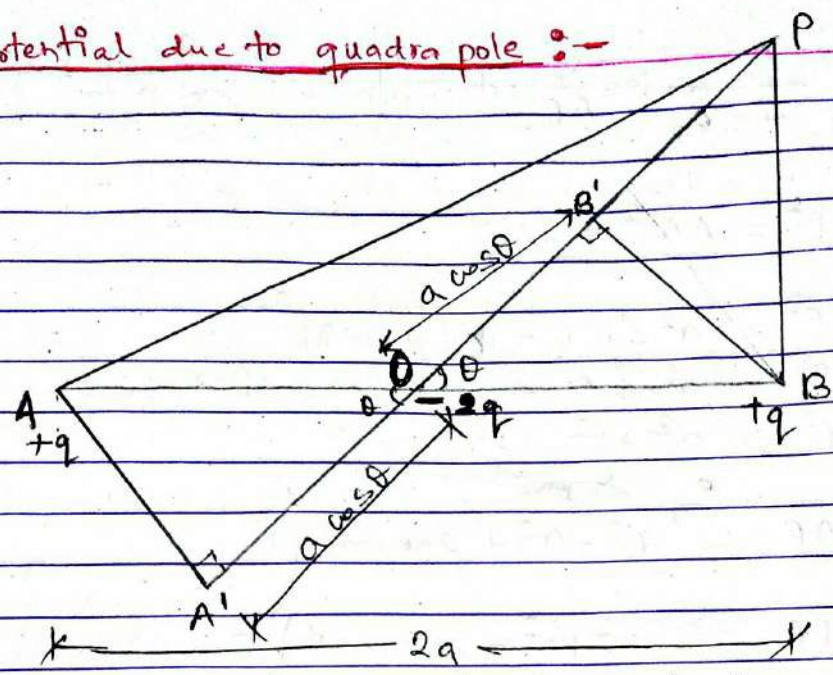 otential due to quadra pole :-
P
B'
a cosθ
O
θ
θ
-2q
A
+q
B
+q
a cosθ
A'
2a